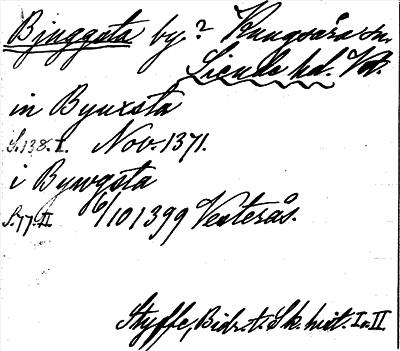 Bjuggsta by? Kungsåra sn.
Siende hd. Vstm.
in Byuxsta
S. 138. I. Nov. 1371.
i Bywgsta
S. 77. II 6/10 1399 Vesterås.
Styffe, Bidr. t. Sk. hist. I o. II